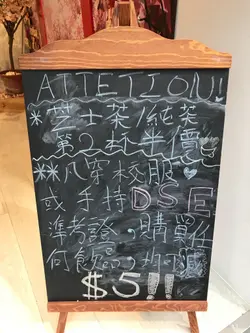 ATTETION!
*芝士茶/純茶
第2杯半價
**凡穿校服
或手持DSE
準考證，購買任
何飲品，均減
$5!!